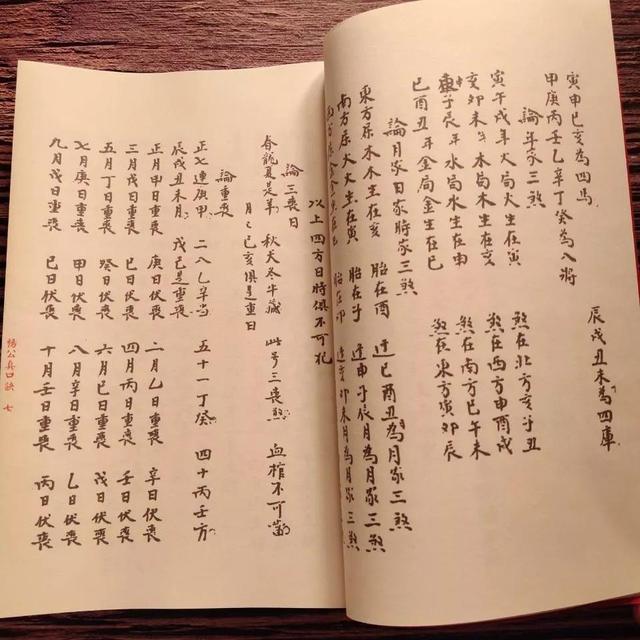 寅申巳亥為四馬 辰戌丑未為四庫
甲庚丙壬乙辛丁癸為八將
論年家三煞
寅午戌年火局火生在寅 煞在北方亥子丑
亥卯未年木局木生在亥 煞在西方申酉戌
申子辰年水局水生在申 煞在南方巳午未
巳酉丑年金局金生在巳 煞在東方寅卯辰
論月家日家時家三煞
東方原木木生在亥 胎在酉 逢巳酉丑為月家三煞
南方原火火生在寅 胎在子 逢申子辰月為月家三煞
胎在卯 逢亥卯未月為月家三煞
以上四方日時俱不可犯
論三喪日
春龍夏是羊 秋犬冬牛藏 此号三喪煞 血棺不可當
月之巳亥俱是重日
論重喪
正七連庚甲 二八乙辛当 五十一丁癸 四十丙壬方
辰戌丑未月 戊己是重喪
正月甲日重喪 庚日伏喪 二月乙日重喪 辛日伏喪
三月戊日重喪 己日伏喪 四月丙日重喪 壬日伏喪
五月丁日重喪 癸日伏喪 六月己日重喪 戊日伏喪
七月庚日重喪 甲日伏喪 八月辛日重喪 乙日伏喪
九月戊日重喪 己日伏喪 十月壬日重喪 丙日伏喪
楊公真口訣 七